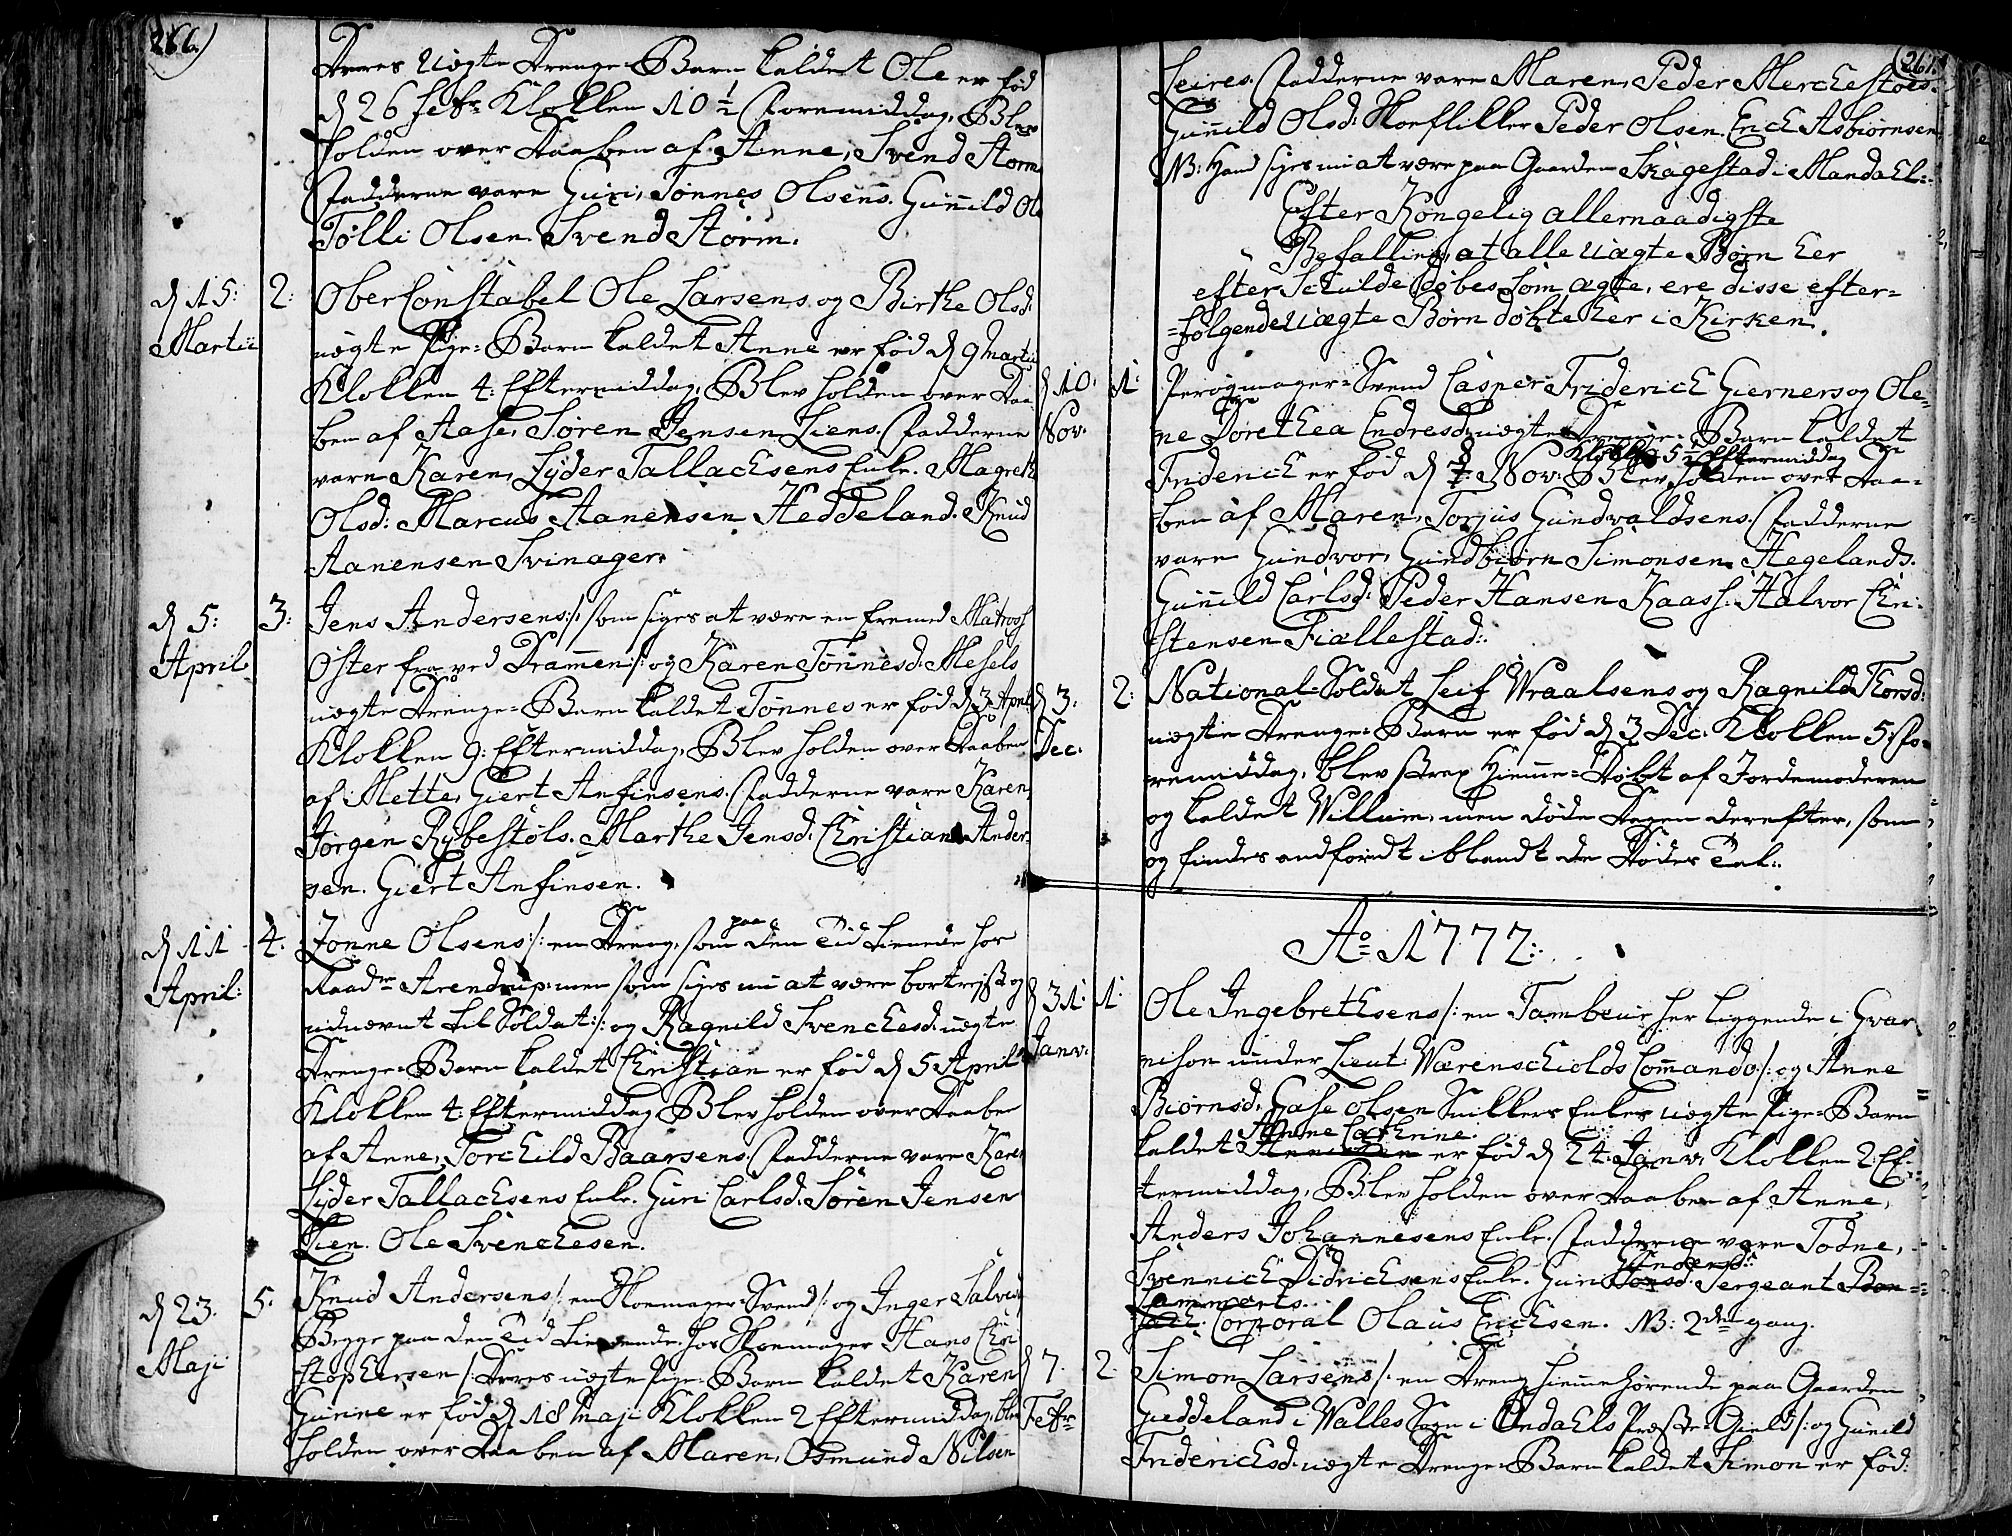 266.)
Deres uægte Drenge-Barn kaldet Ole er fød
d 26 Febr: Klokken 10½ Formiddag, Blev
holden over Daaben af Anne, Svend Storm
Fadderne vare Guri, Tønnes Olsens. Gunnild Ols
Tølli Olsen. Svend Storm.
d 15: Martii 2: Ober Constabel Ole Larsens og Birthe Olsd:
uægte Pige-Barn kaldet Anne er fød d 9 Martii
Klokken 4: Eftermiddag, Blev holden over Daa-
ben af Aase, Søren Jensen Liens. Fadderne
vare Karen, Lyder Tallachsens Enke. Magrethe
Olsd: Marcus Aanensen Heddeland. Knud
Aanensen Svinager.
d 5: April 3: Jens Andersens /: som siges at være en fremmed Matros
Øster fra ved Drammen :/ og Karen Tønnesd: Mesels
uægte Drenge-Barn kaldet Tønnes er fød d 3 April
Klokken 9: Eftermiddag, Blev holden over Daaben
af Mette, Giert Anfinsens. Fadderne vare Karen,
Jørgen Rybestøls. Marthe Jensd: Christian Ander-
sen. Giert Anfinsen.
d 11 April: 4: Jonne Olsens /: en Dreng, som paa den Tid tienede hos
Raadm Arendrup, men som siges nu at være bortreist og
udnævnt til Soldat :/ og Ragnild Svenchesd: uægte
Drenge-Barn kaldet Christian er fød d 5 April
Klokken 4: Eftermiddag Blev holden over Daaben
af Anne, Torchild Baarsens. Fadderne vare Karen
Lyder Tallachsens Enke. Guri Carlsd: Søren Jensen
Lien. Ole Svenchesen.
d 23. Maji 5: Knud Andersens /: en Skoemager-Svend :/ og Inger Salves
Begge paa den Tid tienende hos Skoemager Hans Chri-
stophersen :/ Deres uægte Pige-Barn kaldet Karen
Gunne er fød d 18 Maji Klokken 2 Eftermiddag, blev
holden over Daaben af Maren, Osmund Nilsen
261.
Leires. Fadderne vare Maren, Peder Merchestøls.
Gunnild Olsd: Peder Olsen. Erich Asbiørnsen
NB: Hand siges nu at være paa Gaarden Skagestad i Mandahl:
Efter Kongelig allernaadigste
Befalling, at alle uægte Børn her
efter Schulde døbes som ægte, ere disse efter-
følgende uægte Børn døbte her i Kirken.
d 10: Nov: 1: Perøgmager-Svend Casper Friderich Gierners og Ole-
ne Dorethea Endresd: uægte Drenge-Barn kaldet
Klokken 5½ Eftermiddag
Friderich er fød d 8 Nov: Blev holden over Daa-
ben af Maren, Torjus Gundvaldsens. Fadderne
vare Gundvor, Gundbiørn Simonsen Hegelands.
Gunnild Carlsd: Peder Hansen Kaass. Halvor Chri-
stensen Fiællestad.
d 3: Dec: 2: National-Soldat Leif Wraalsens og Ragnild Thorsd:
uægte Drenge-Barn er fød d 3 Dec: Klokken 5: Fo-
remiddag, blev strax Hiemme-Døbt af Jordemoderen
og kaldet Willum, men døde Dagen derefter, som
og findes andførdt iblandt de Dødes Tal:
Ao 1772:
d 31: Janv: 1: Ole Ingebrethsens /: en Tambour her liggende i Guar-
nison under Lieut: Wærenschiolds Commando :/ og Anne
Biørnsd: Gase Olsen Snillers Enkes uægte Pige-Barn
kaldet Anne Cathrine er fød d 24: Janv: Klokken 2: Ef-
termiddag, Blev holden over Daaben af Anne,
Anders Johannesens Enke. Fadderne vare Todne,
Svennich Didrichsens Enke. Guri Andersd: Sergeant
Lammerts. Corporal Olaus Erichsen. NB: 2den gang.
d 7. Febr: 2. Simon Larsens /: en Dreng hiemmehørende paa Gaarden
Gieddeland i Walles Sogn i Undahls Præste-Gield :/ og Gunild
Friderichsd: uægte Drenge-Barn kaldet Simon er fød: